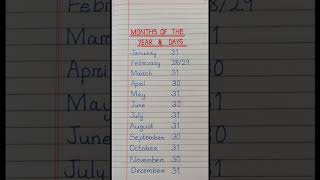 MONTHS OF THE
YEAR & DAYS
January 31
February 28/29
March 31
April 30
May 31
June 30
July 31
August 31
September 30
October 31
November 30
December 31